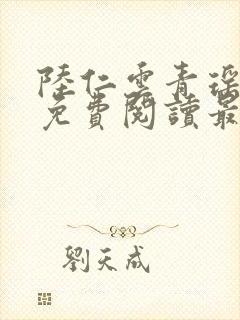 陸仁雲青瑶
免費閱讀最
劉天成